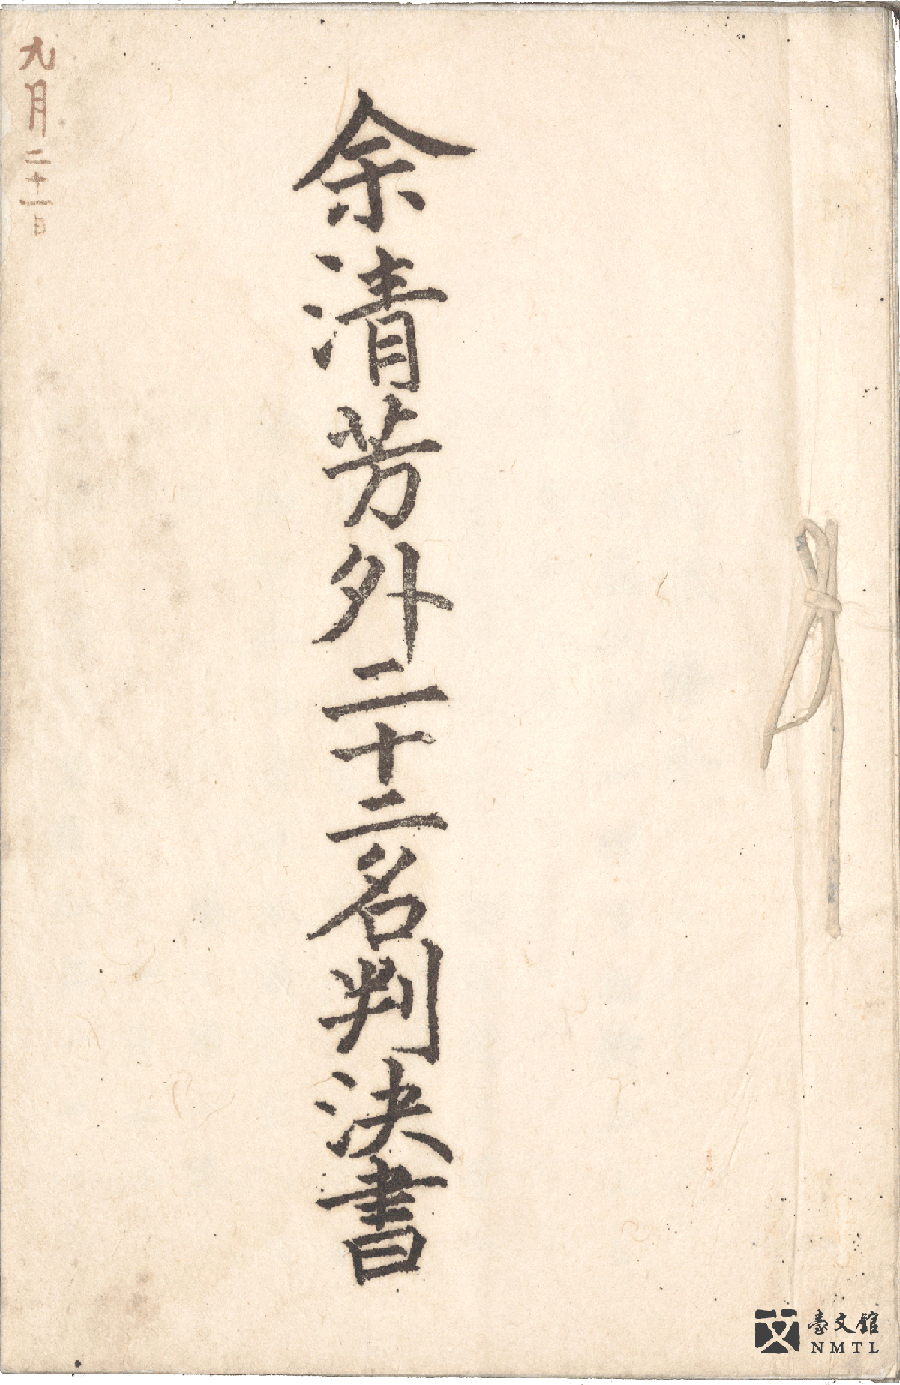 余清芳外二十二名判決書
九月二十一日
臺文館
NMTL